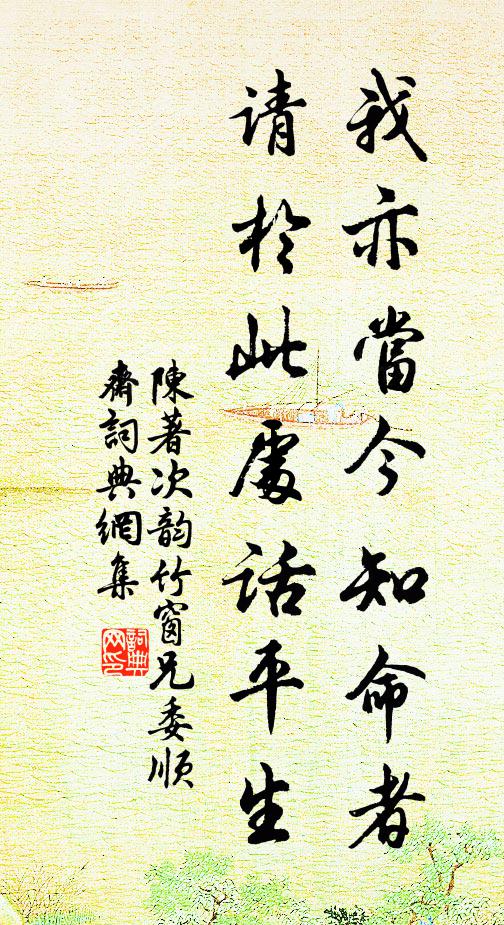 我亦當今知命者
请於此處话平生
陳著次韵竹窗兄委順
齋詞典網集
詞典网印